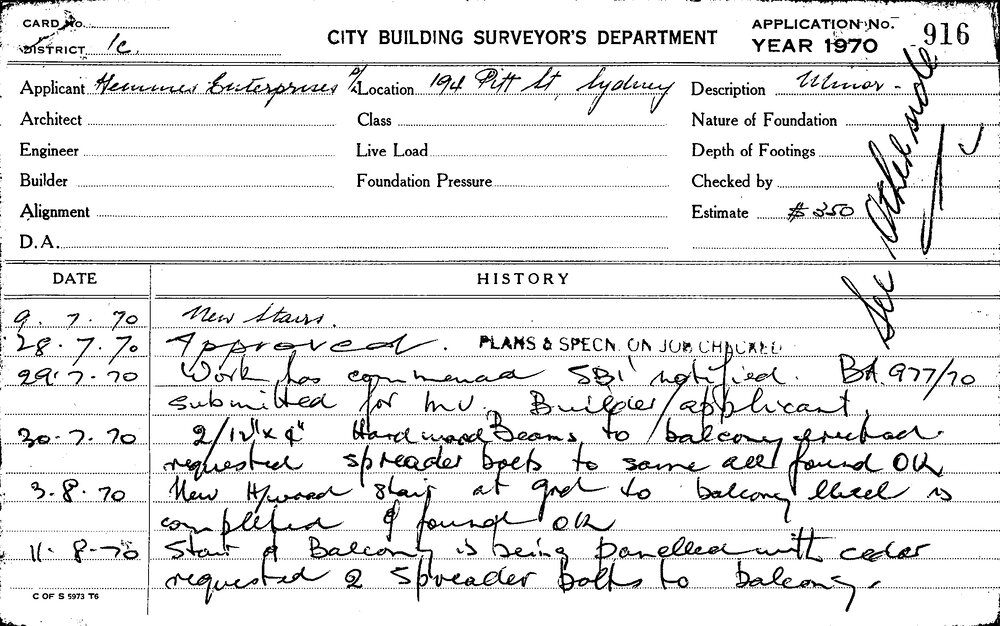 CARD No.
DISTRICT 1c.
CITY BUILDING SURVEYOR'S DEPARTMENT
APPLICATION No. 916
YEAR 1970
Applicant Hemmes Enterprises P/L Location 194 Pitt St, Sydney Description Minor -
Architect Class Nature of Foundation
Engineer Live Load Depth of Footings
Builder Foundation Pressure Checked by
Alignment Estimate $350
D.A.
See Other side
DATE HISTORY
9. 7. 70 New Stairs.
28. 7. 70 Approved. PLANS & SPECN. ON JOB CHECKED
29. 7. 70 Work has commenced SBI notified. BA 977/70
submitted for M.V. Builder/applicant.
30. 7. 70 2/12"x 4" Hardwood Beams to balcony erected.
requested spreader bolts to same all found OK
3. 8. 70 New H/wood stair at grd to balcony level is
completed & found OK
11. 8. 70 Stair & Balcony is being panelled with cedar
requested 2 spreader bolts to balcony.
C OF S 5973 T6